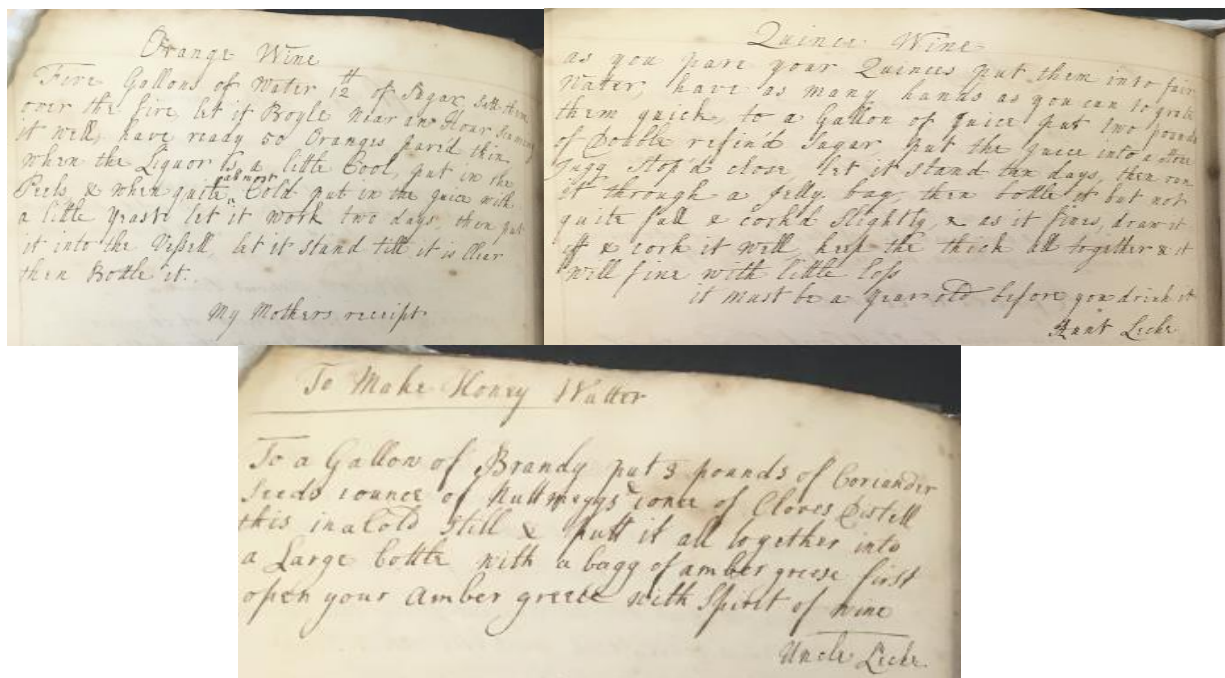 Orange Wine
Five Gallons of Water 12 th of Sugar, sett them
over the fire let it Boyle near an Hour Scuming
it well, have ready 50 Oranges pared thin
when the Liquor is a little Cool, put in the
Peels, & when quite allmost Cold put in the juice with
a little yeast let it work two days, then put
it into the Vessell, let it stand till it is Cleer
then Bottle it.
My Mothers receipt
Quince Wine
as you pare your Quinces put them into fair
Water, have as many hands as you can to grate
them quick, to a Gallon of Juice put two pounds
of Double refin'd Sugar put the juice into a stone
Jugg Stop'd close let it stand ten days, then run
it through a Jelly bag, then bottle it but not
quite full & corkd Slightly, & as it fines, draw it
off & cork it well keep the thick all together & it
will fine with little loss
it must be a year old before you drink it
Aunt Leche
To Make Honey Watter
To a Gallon of Brandy put 3 pounds of Coriander
Seeds 1 ounce of Nuttmeggs & 1 once of Cloves Distell
this in a Cold Still & putt it all together into
a Large bottle with a bagg of amber greese first
open your amber greece with Spirit of wine
Uncle Leche.